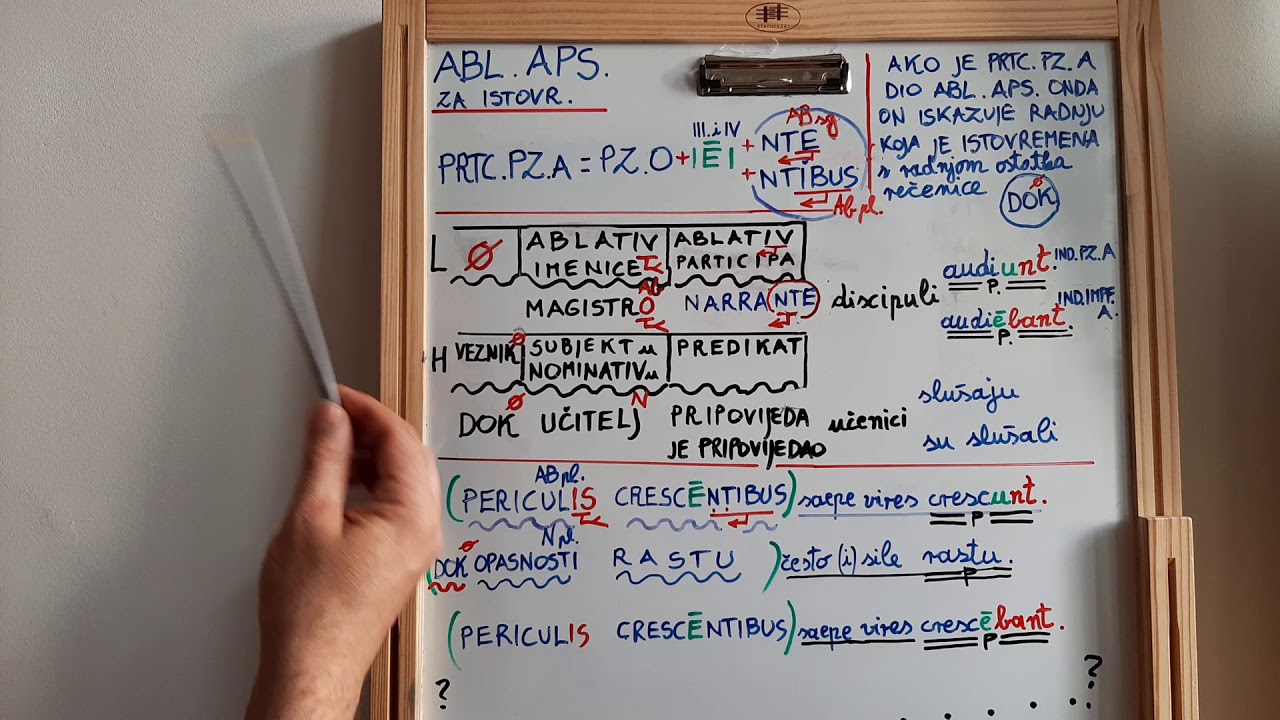 ABL. APS.
ZA ISTOVR.
PRTC.PZ.A = PZ.O + IĒI + NTE
III. i IV
ABsg
+ NTIBUS
Ab pl.
AKO JE PRTC.PZ.A
DIO ABL. APS. ONDA
ON ISKAZUJE RADNJU
KOJA JE ISTOVREMENA
s radnjom ostatka
rečenice
DOK
L Ø ABLATIV IMENICE ABLATIV PARTICIPA
Ab
MAGISTRO NARRANTE discipuli audiunt. IND.PZ.A
P.
audiēbant. IND.IMPF.A.
P.
H VEZNIK SUBJEKT u NOMINATIVu PREDIKAT
N
DOK UČITELJ PRIPOVIJEDA učenici slušaju
JE PRIPOVIJEDAO su slušali
AB pl.
(PERICULIS CRESCĒNTIBUS) saepe vires crescunt.
P
N pl.
(DOK OPASNOSTI RASTU) često (i) sile rastu.
P
(PERICULIS CRESCĒNTIBUS) saepe vires crescēbant.
P
? . . . . ?